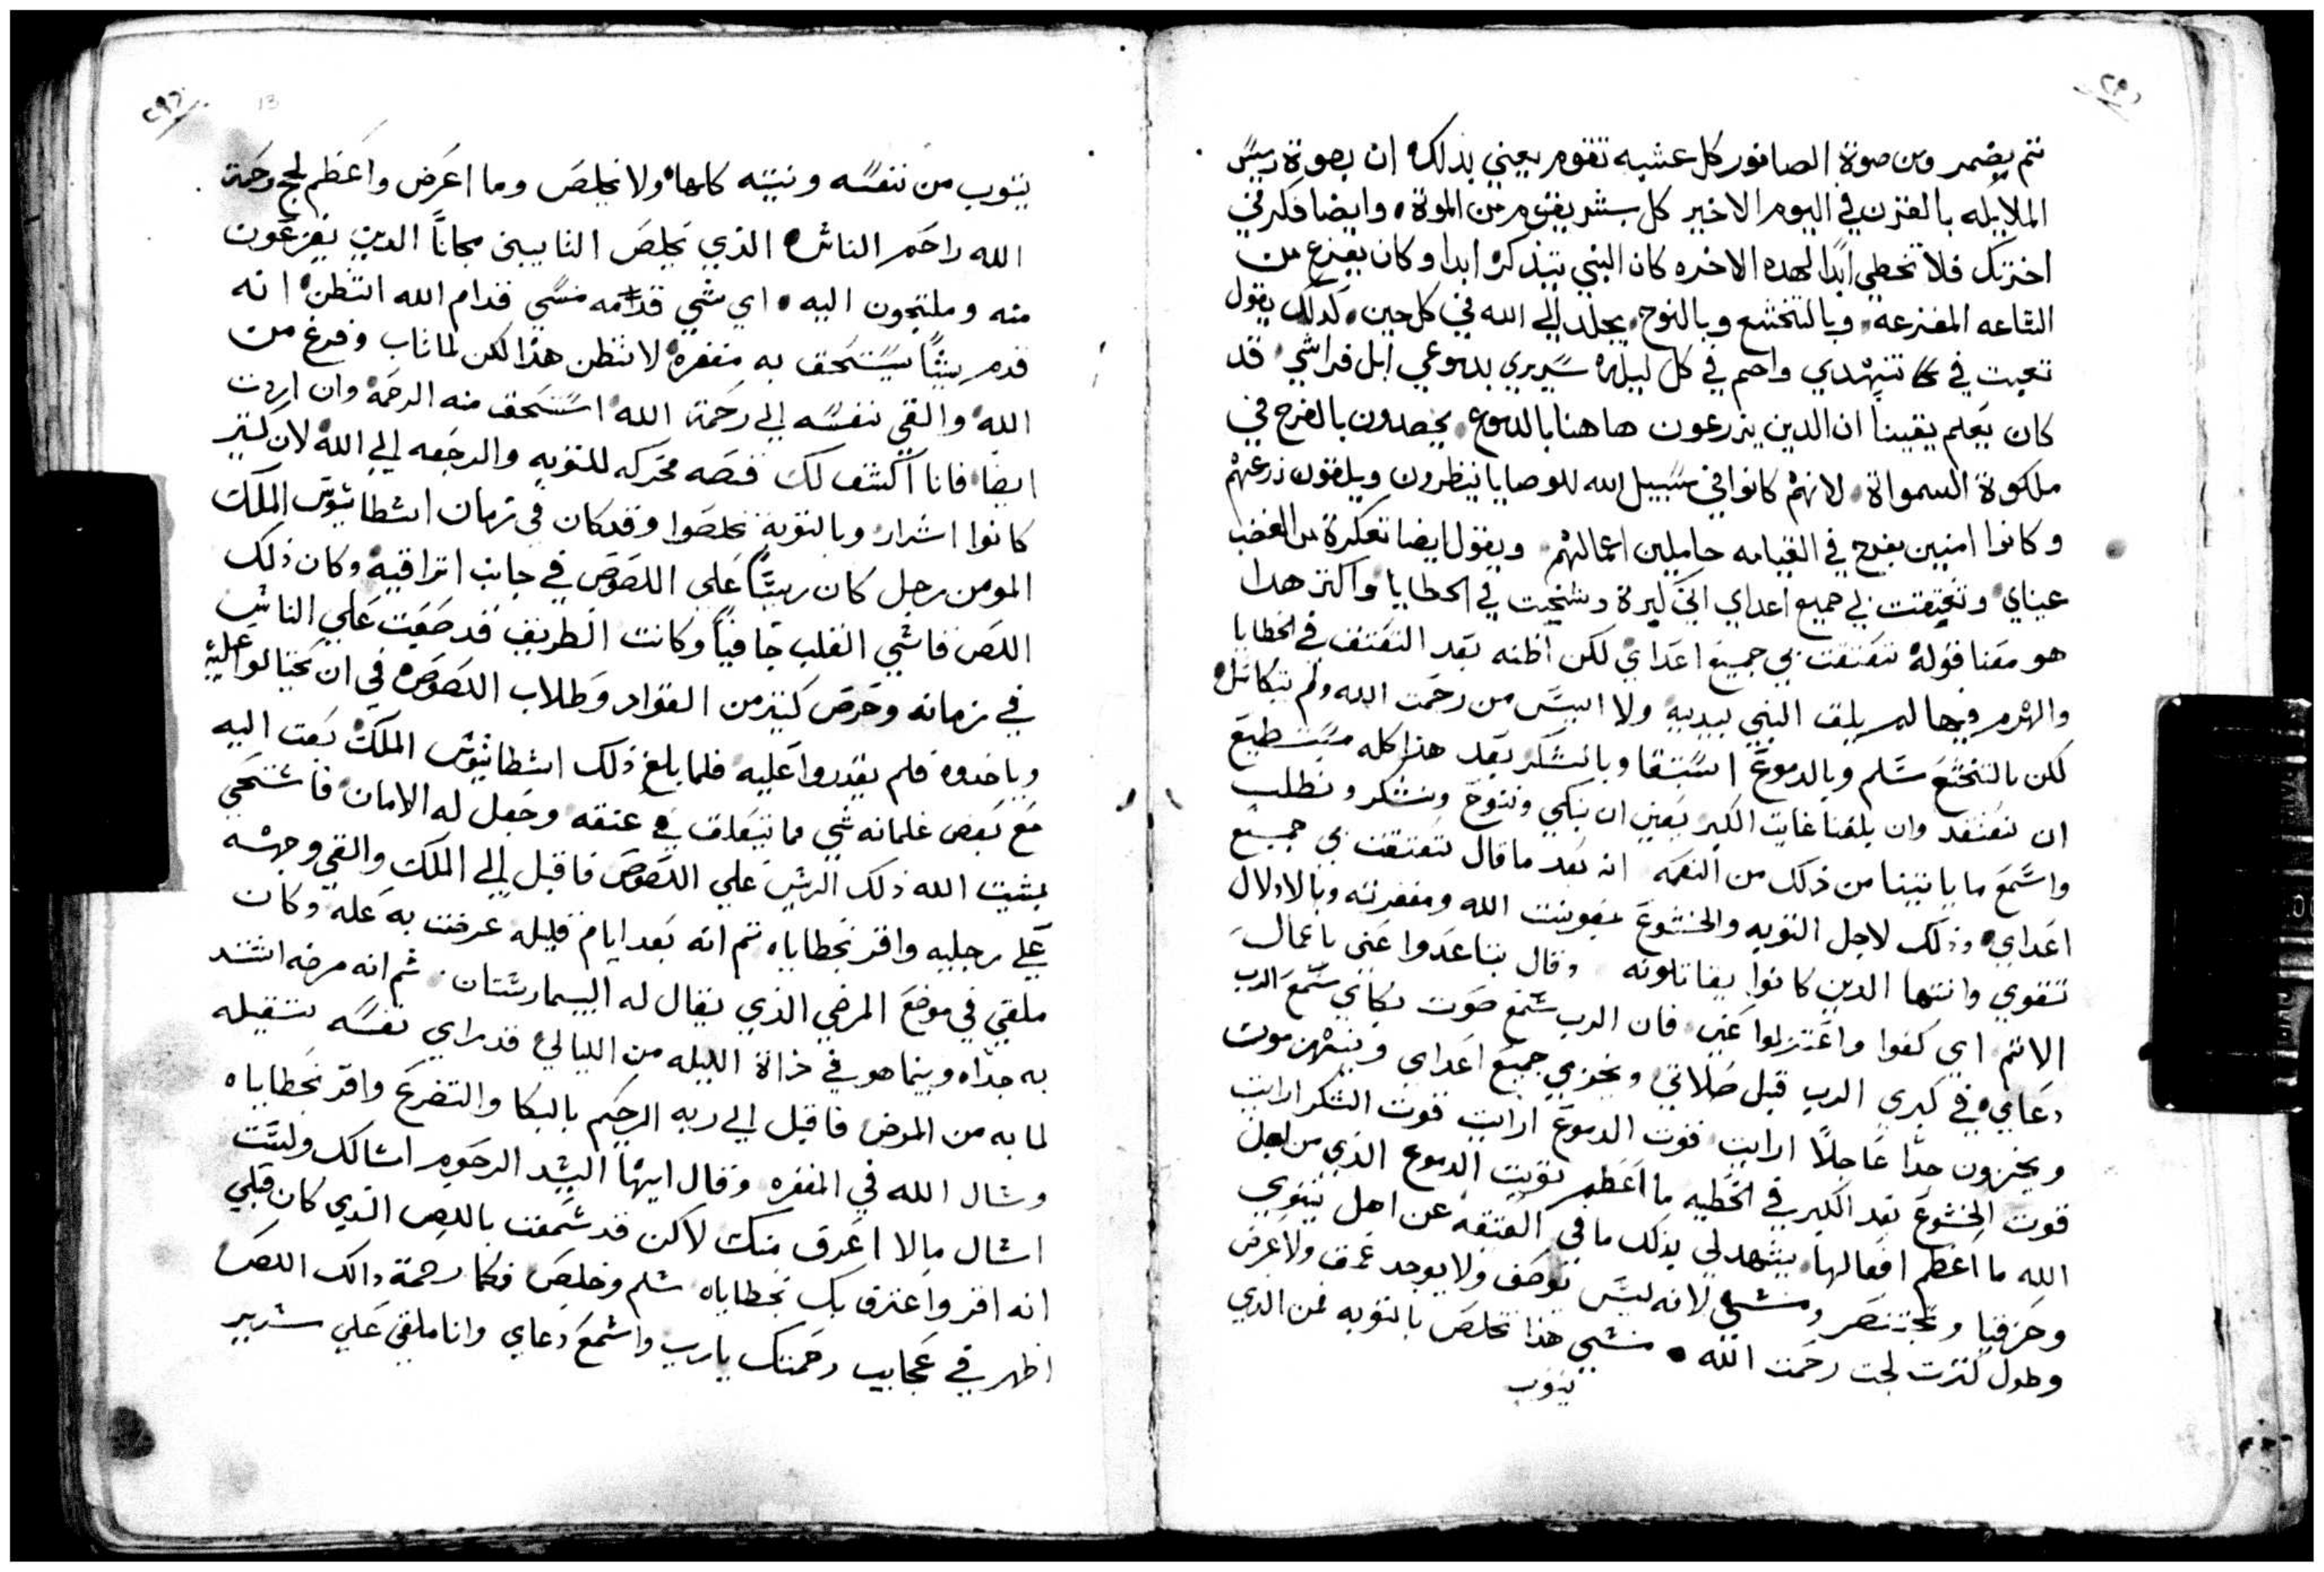 ثم يضمر ومن صوة الصافور كل عشبه تقوم يعني بذلك ان بصوة ريس
الملايكه بالقرن في اليوم الاخير كل بشر يقوم من الموة وايضا فكر في
اخرتك فلا تخطي ابدا لهده الاخره كان النبي يتذكر ابدا وكان يفزع من
الساعه المفزعه وبالتخشع وبالنوح الي الله في كل حين كدلك يقول
تعبت في تنهدي واحم في كل ليله سريري بدموعي ابل فراشي قد
كان يعلم يقينا ان الدين يزرعون هاهنا بالدموع يحصدون بالفرح في
ملكوة السمواة لانهم كانوا في سبيل الله للوصايا ينظرون ويلقون زرعهم
وكانوا امنين بفرح في القيامه حاملين اعمالهم ويقول ايضا تعكرة من الغضب
عيناي وتعتقت في جميع اعداي اني كبرة وشخت في الخطايا واكثر هدا
هو معنا قوله تعتقت بي جميع اعداي لكن اظنه بعد التعتق في الخطايا
والهرم فيها لم يلق النبي بيديه ولا ايس من رحمت الله ولم يتكاسل
لكن بالتخشع سلم وبالدموع استقا وبالشكر بعد هذا كله مستطيع
ان نعتقد وان بلغنا غايت الكبر يعني ان نبكي وننوح ونشكر ونطلب
واسمع ما ياتينا من ذلك من النعمه انه بعد ما قال تعتقت بي جميع
اعداي وذلك لاجل التوبه والخشوع بمعونت الله ومغفرته وبالادلال
تقوي وانتها الدين كانوا يقاتلونه وقال تباعدوا عني ياعمال
الاثم اي كفوا واعتزلوا عني فان الرب سمع صوت بكاي سمع الرب
دعاي في كبري الرب قبل صلاتي ويخزي جميع اعداي وينبهرموت
ويخزون جدا عاجلا ارايت قوت الدموع ارايت قوت الشكر ارايت
قوت الخشوع بعد الكبر في الخطيه ما اعظم توبت الدموع الذي من اجل
الله ما اعظم افعالها يشهد لي بذلك ما في العتقه عن اهل نينوي
وحزقيا وبختنصر ومنسي لانه ليس توصف ولا يوجد عمق ولا عرض
وطول كثرت لجت رحمت الله منسي هذا تخلص بالتوبه فمن الذي
يتوب
يتوب من نفسه ونيته كلها ولا يخلص وما اعرض واعظم لجج رحمة
الله راحم الناس الذي يخلص التايبين مجانا الدين يفزعون
منه وملتجون اليه اي شي قدمه منسي قدام الله اتظن انه
قدم شيئا يستحق به مغفره لا تظن هذا لكن لما تاب وفرغ من
الله والقي نفسه الي رحمة الله استحق منه الرحمه وان اردت
ايضا فانا اكشف لك قصه محركه للتوبه والرجعه الي الله لان كثير
كانوا اشرار وبالتوبة تخلصوا وقد كان في زمان انسطاتيوس الملك
المومن رجل كان ريسا علي اللصوص في جانب اتراقيه وكان ذلك
اللص قاسي القلب جافيا وكانت الطريق قد صعبت علي الناس
في زمانه وحرص كثير من القواد وطلاب اللصوص في ان يحتالوا عليه
وياخدوه فلم يقدروا عليه فلما بلغ ذلك انسطاتيوس الملك بعت اليه
مع بعض غلمانه شي مما يتعلق في عنقه وجعل له الامان فاستحي
بمشيت الله ذلك الريس علي اللصوص فاقبل الي الملك والقي وجهه
علي رجليه واقر بخطاياه ثم انه بعد ايام قليله عرضت به عله وكان
ملقي في موضع المرضي الذي يقال له البيمارستان ثم انه مرضه اشتد
به جدا وبينما هو في ذاة الليله من الليالي قد راي نفسه ثقيله
لما به من المرض فاقبل الي ربه الرحيم بالبكا والتضرع واقر بخطاياه
وسال الله في المغفره وقال ايها السيد الرحوم اسالك ولست
اسال مالا اعرف منك لاكن قد سمعت باللص الذي كان قبلي
انه اقر واعترف بك بخطاياه سلم وخلص فكما رحمة دالك اللص
اظهر في عجايب رحمتك يارب واسمع دعاي وانا ملقي علي سرير